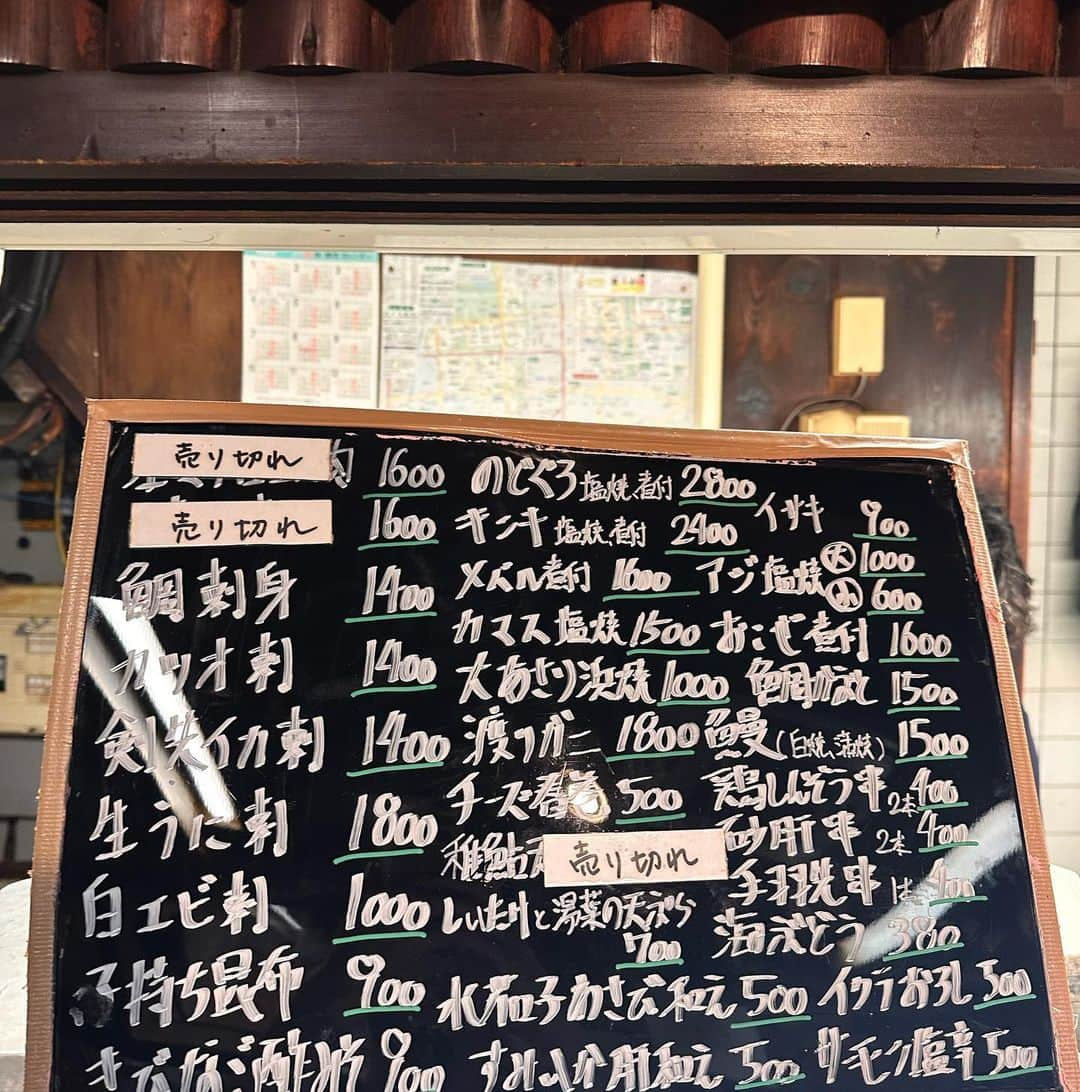 売り切れ 1600
売り切れ 1600
鯛刺身 1400
カツオ刺 1400
剣先イカ刺 1400
生うに刺 1800
白エビ刺 1000
子持ち昆布 900
きびなご酢〆 900
のどぐろ 塩焼、煮付 2800
キンキ 塩焼、煮付 2400
メバル煮付 1600
カマス塩焼 1500
大あさり浜焼 1000
渡りガニ 1800
チーズ春巻 500
稚鮎天 売り切れ
しいたけと湯葉の天ぷら
700
水茄子わさび和え 500
すみいか肝和え 500
イサキ 900
アジ塩焼 大 1000
小 600
おこぜ煮付 1600
鯛かぶと 1500
鰻(白焼、蒲焼) 1500
鶏しんぞう串 2本 400
砂肝串 2本 400
手羽先串 1本 400
海ぶどう 380
イクラおろし 500
サーモン塩辛 500